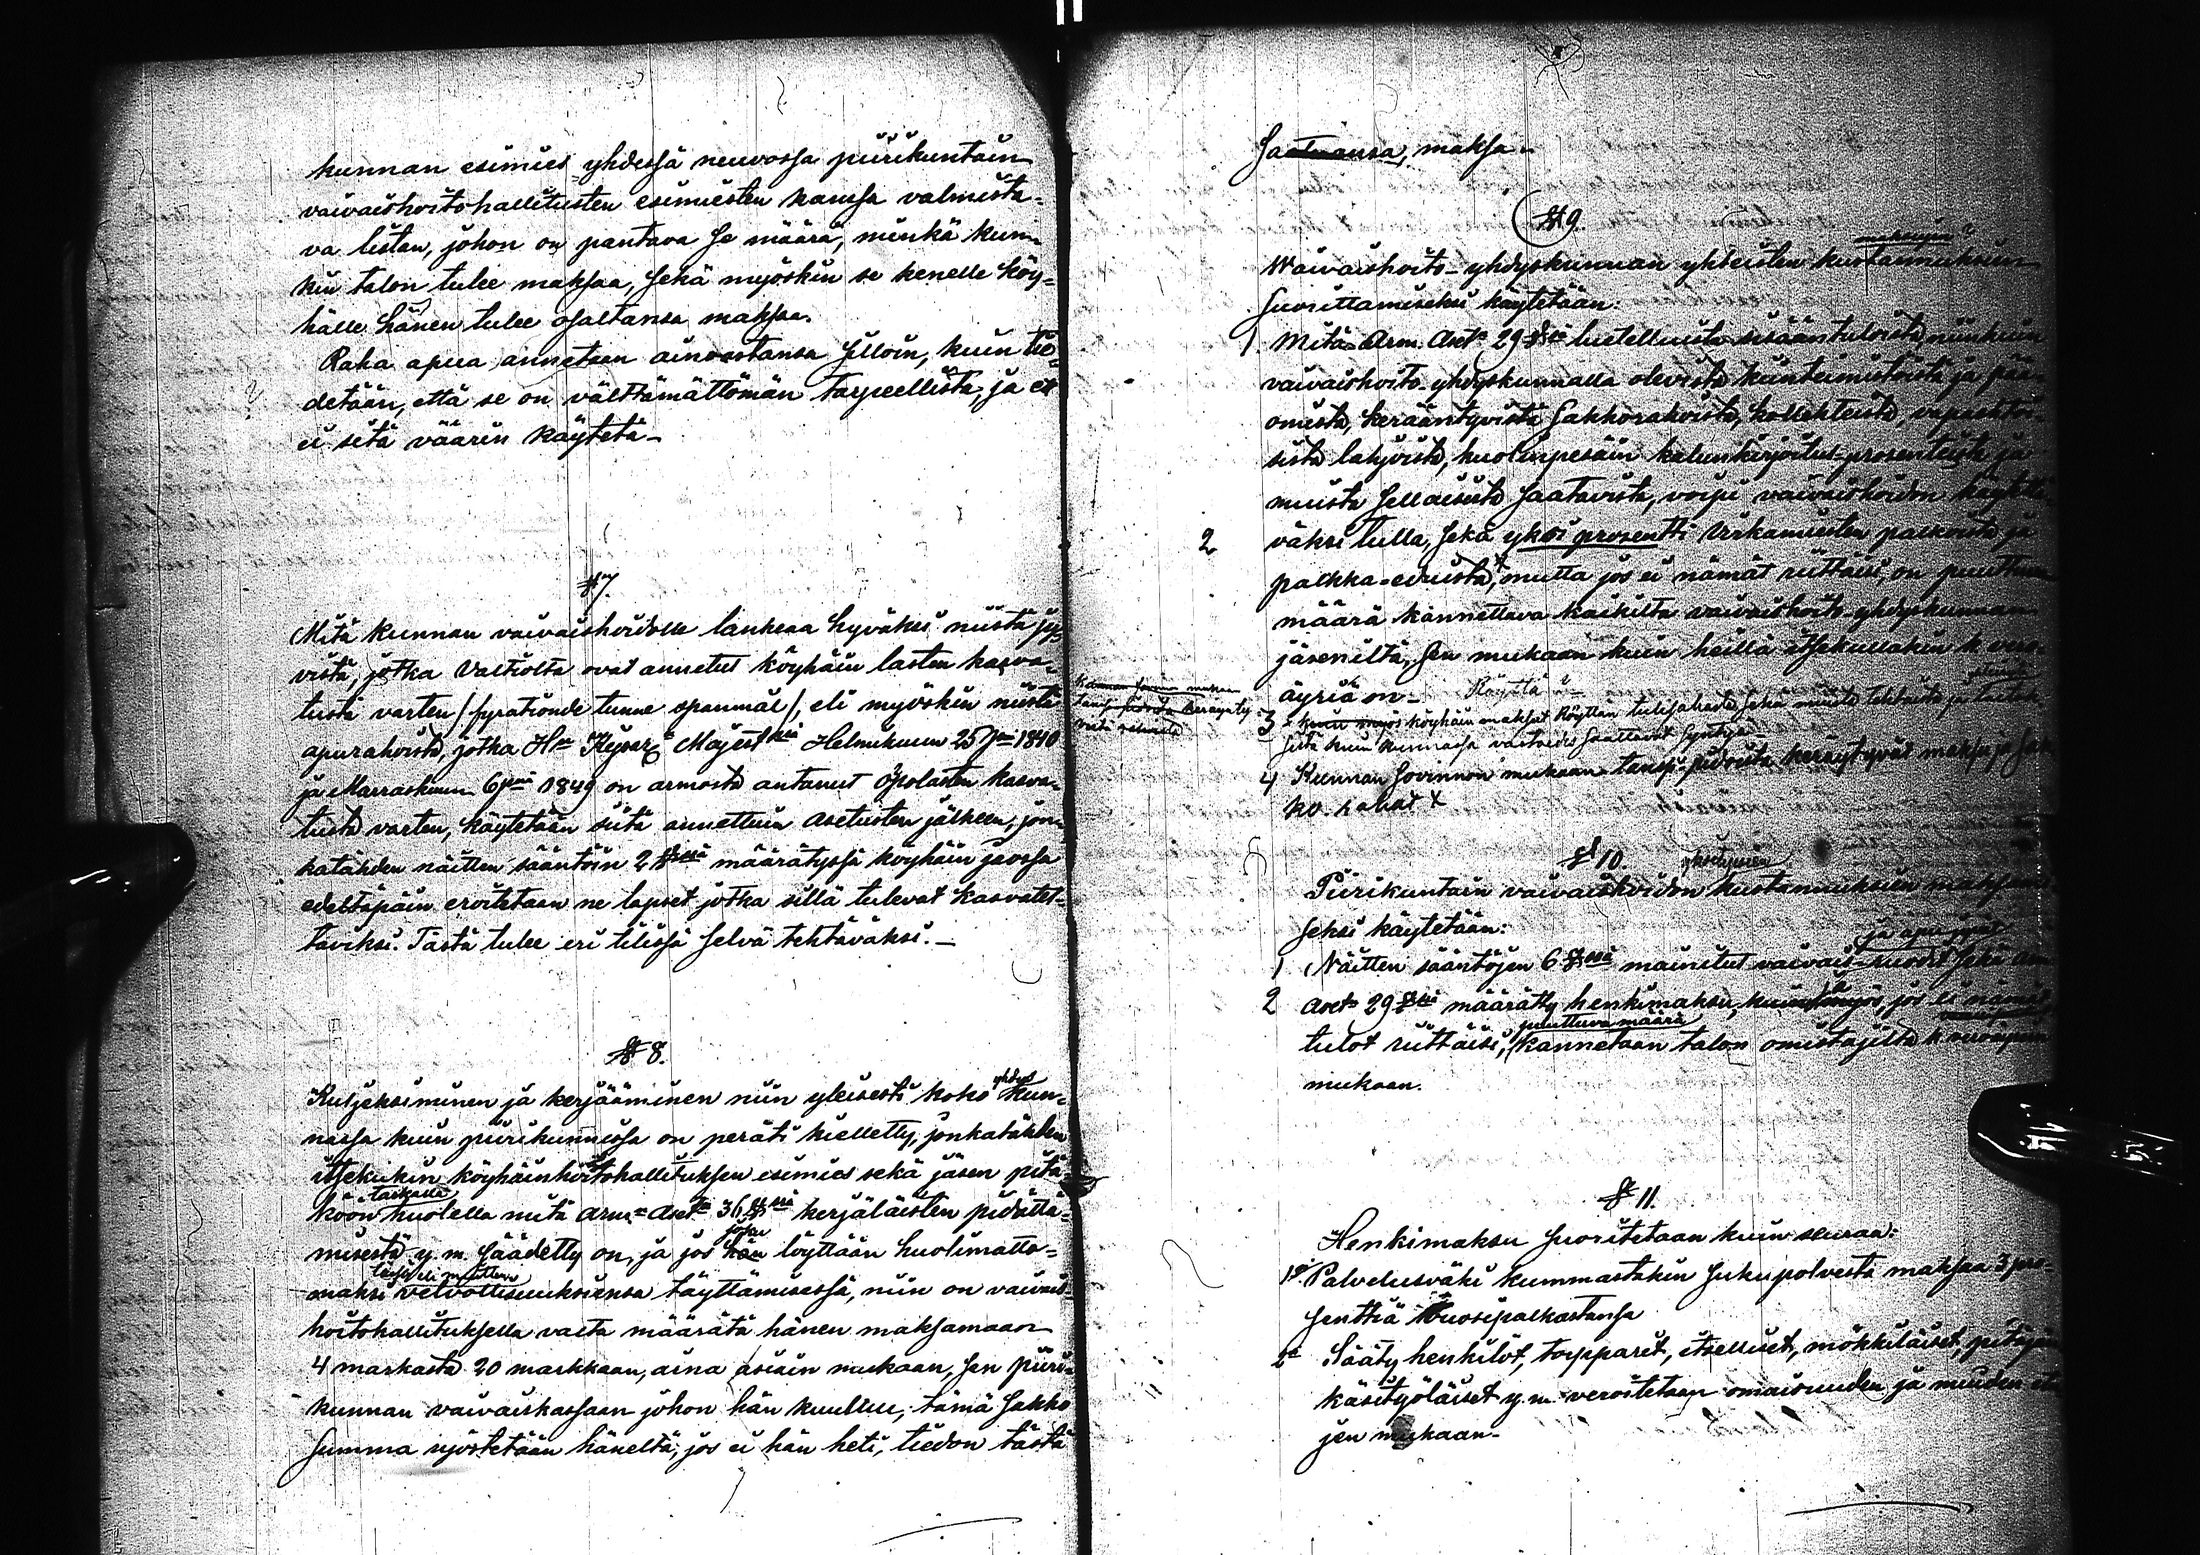 kunnan esimies yhdessä neuvossa piirikuntain
vaivaishoitohallitusten esimiesten kanssa valmista-
va listan, johon on pantava se määrä, minkä kun-
kin talon tulee maksaa, sekä myöskin se kenelle köy-
hälle hänen tulee osaltansa maksaa.
Raha apua annetaan ainoastansa silloin, kuin tie-
detään, että se on välttämättömän tarpeellista, ja et
ei sitä väärin käytetä_
§ 7.
Mitä kunnan vaivaishoidolle lankeaa hyväksi niistä jy-
vistä, jotka Valtiolta ovat annetut köyhäin lasten kasva-
tusta varten /fyrationde tunne spanmål/, eli myöskin niistä
apurahoista, jotka H:n Keisar: Majest Helmikuun 25 p:nä 1840
ja Marraskuun 6 p:nä 1849 on armosta antanut öpolasten kasva-
tusta varten, käytetään siitä annettuin asetusten jälkeen, jon-
katähden näitten sääntöin 2 §:ssä määrätyssä köyhäin jaossa
edeltäpäin eroitetaan ne lapset jotka sillä tulevat kasvatet-
taviksi. Tästä tulee eri tilissä selvä tehtäväksi._
§ 8.
yhdys
Kuljeksiminen ja kerjääminen niin yleisesti koko kun-
nassa kuin piirikunnissa on peräti kielletty, jonkatähden
itsekukin köyhäinhoitohallituksen esimies sekä jäsen pitä-
tarkalla
köön huolella mitä Arm= Aset 36 §:ssä kerjäläisten pidättä-
joku
misestä y. m. säädetty on, ja jos hän löyttään huolimatto-
maksi velvollisuuksiensa täyttämisessä, niin on vaivais-
hoitohallituksella valta määrätä hänen maksamaan
4 markasta 20 markkaan, aina asiain mukaan, sen piiri-
kunnan vaivaiskassaan johon hän kuuluu, tämä sakko
summa ryöstetään häneltä, jos ei hän heti, tiedon tästä
saatuansa, maksa_
§ 9.
Waivaishoito-yhdyskunnan yhteisten kustannuksien
suorittamiseksi käytetään:
1 Mitä Arm. Aset 29 §:ssä luetelluista sisääntuloista niinkuin
vaivaishoito-yhdyskunnalla olevista kiinteimistöistä ja pää-
omista, kerääntyvistä sakkorahoista, kollehteista, vapaehtoi-
sista lahjoista, kuolinpesäin kalunkirjoitus-prosenteista ja
muista sellaisista saatavista, voipi vaivaishoidon käytettä-
2 väksi tulla, sekä yksi prosentti Virkamiesten palkoista ja
palkka-eduista, x mutta jos ei nämät riittäisi, on puuttuva
määrä kannettava kaikilta vaivaishoito-yhdyskunnan
jäseniltä, sen mukaan kuin heillä itsekullakin k vero-
äyriä on_
3 kuin myös köyhäin maksut Röyttän tulisahasta sekä muista tehtaista ja
jista kuin kunnassa vastaedes saattavat syntyä_
4 Kunnan sovinnon mukaan pidoista keräytyvät maksu ja
ko. rahat x
§ 10.
yksityisien
Piirikuntain vaivaishoidon kustannuksien maksami-
seksi käytetään:
ja apu jyvät
1 Näitten sääntöjen 6 §:ssä mainitut vaivais-ruodit sekä
2 Aset 29 §:ssä määrätty henkimaksu, kuin myös, jos ei nämät
puuttuva määrä
tulot riittäisi, kannetaan talon omistajilta k veroäyrin
mukaan.
§ 11.
Henkimaksu suoritetaan kuin seuraa:
1º Palvelusväki kummastakin sukupolvesta maksaa 3 pro-
senttia vuosipalkastansa
2º Sääty henkilöt, torpparit, itselliset, mökkiläiset, pitäjän
käsityöläiset y. m. verotetaan omaisuuden ja muiden
jen mukaan_